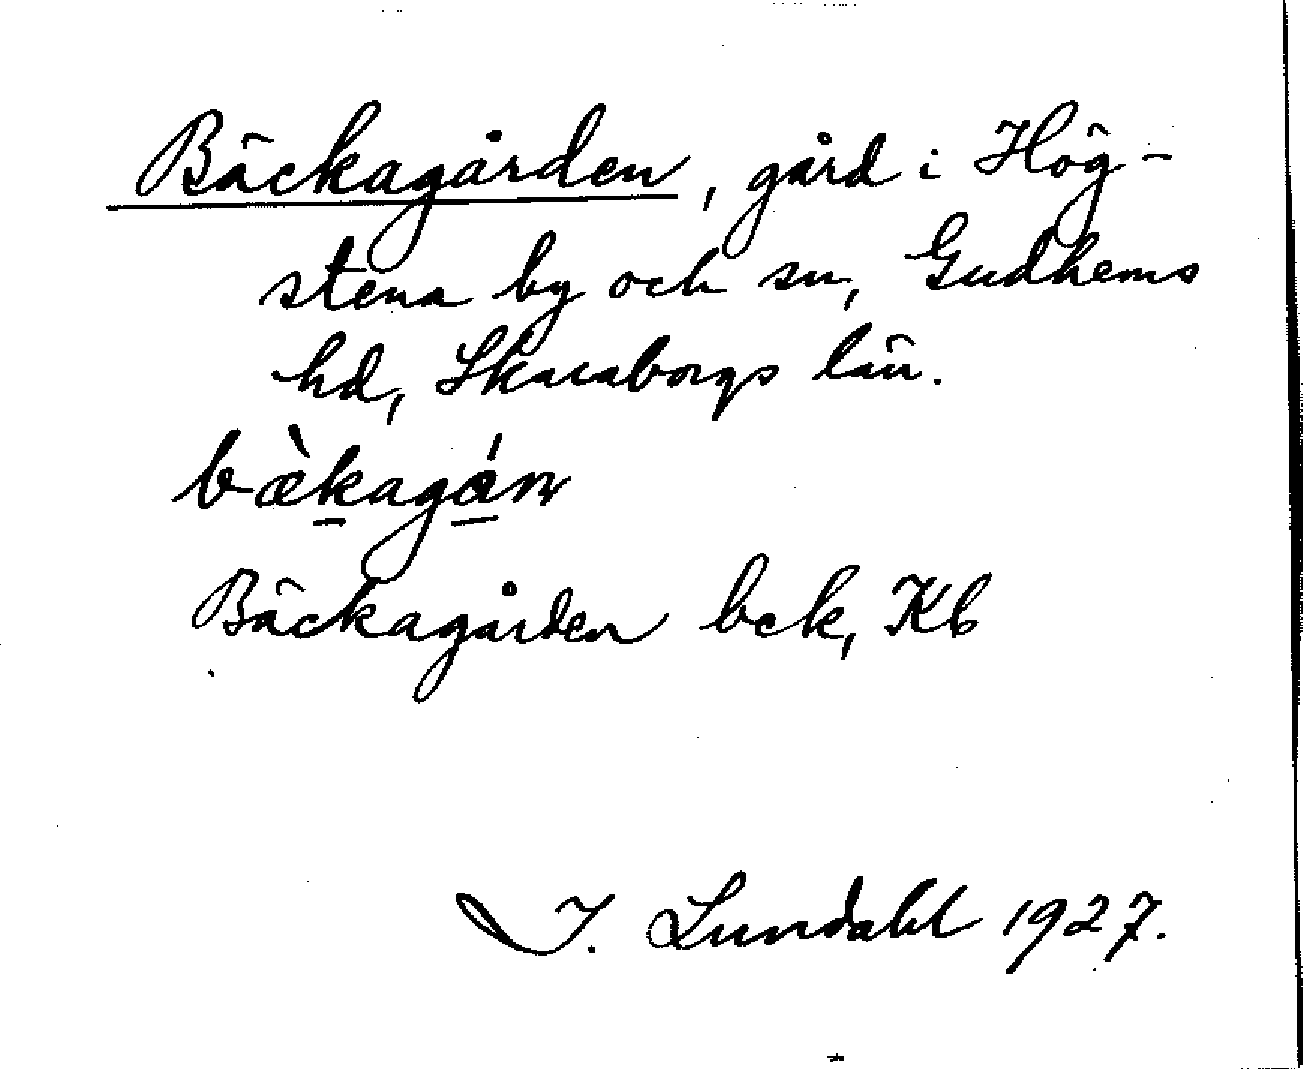 Bäckagården, gård i Hög-
stena by och sn, Gudhems
hd, Skaraborgs län.
bæ̀kagán
Bäckagården bck, Kb
I. Lundahl 1927.